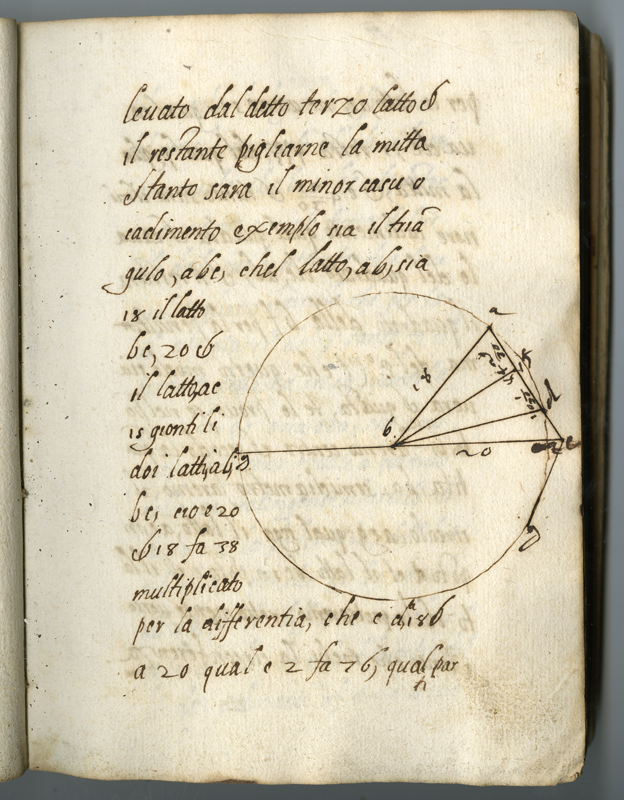 leuato dal detto terzo latto &
il restante pigliarne la mitta
& tanto sara il minor casu o
cadimento exemplo sia il tria
gulo, abc, chel latto, ab, sia
18 il latto
bc, 20 &
il latto, ac
15 gionti li
doi latti, ab,
bc, cio e 20
& 18 fa 38
multiplicato
per la differentia, che e da 18
a 20 qual e 2 fa 76, qual par
ti
a
18
b
20
d
c
g